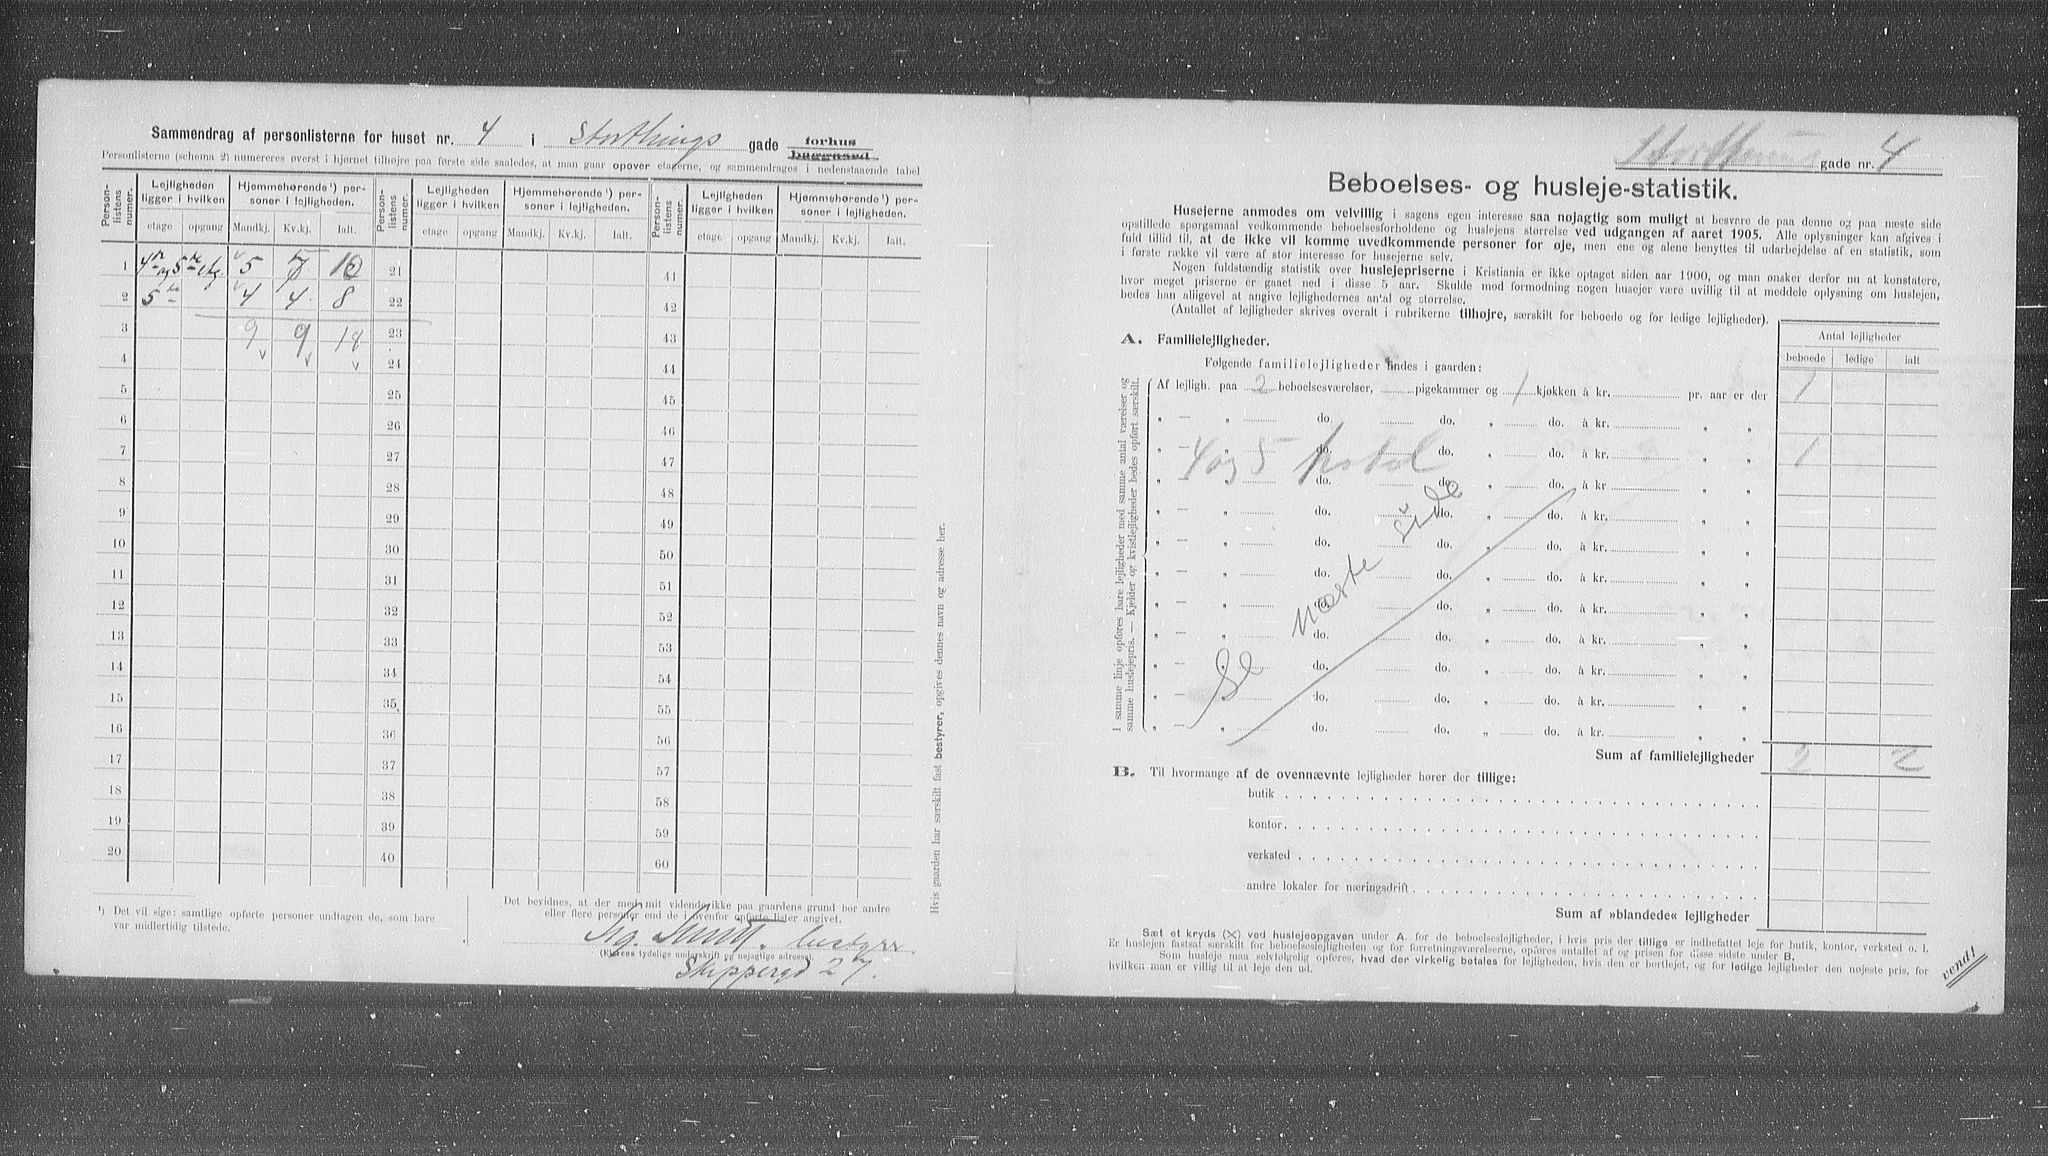 Sammendrag af personlisterne for huset nr. 4 i Storthings gade forhus
baggaard
Personlisterne (schema 2) numereres øverst i hjørnet tilhøjre paa første side saaledes, at man gaar opover etagerne, og sammendrages i nedenstaaende tabel
Person-listens numer. Lejligheden ligger i hvilken Hjemmehørende ¹) personer i lejligheden. Person-listens numer. Lejligheden ligger i hvilken Hjemmehørende ¹) personer i lejligheden. Person-listens numer. Lejligheden ligger i hvilken Hjemmehørende ¹) personer i lejligheden.
etage opgang Mandkj. Kv.kj. Ialt. etage opgang Mandkj. Kv.kj. Ialt. etage opgang Mandkj. Kv.kj. Ialt.
1 4 og 5 etg. 5 10 21 41
2 5 4 4. 8 22 42
3 9 9 18 23 43
4 24 44
5 25 45
6 26 46
7 27 47
8 28 48
9 29 49
10 30 50
11 31 51
12 32 52
13 33 53
14 34 54
15 35 55
16 36 56
17 37 57
18 38 58
19 39 59
20 40 60
¹) Det vil sige: samtlige opførte personer undtagen de, som bare
var midlertidig tilstede.
Det bevidnes, at der med mit vidende ikke paa gaardens grund bor andre
eller flere personer end de i ovenfor opførte lister angivet.
Sig. bestyrer
(Ejerens tydelige underskrift og nøjagtige adresse).
Skippergd 27.
Hvis gaarden har særskilt fast bestyrer, opgives dennes navn og adresse her.
Storthings gade nr. 4
Beboelses- og husleje-statistik.
Husejerne anmodes om velvillig i sagens egen interesse saa nøjagtig som muligt at besvare de paa denne og paa næste side
opstillede spørgsmaal vedkommende beboelsesforholdene og huslejens størrelse ved udgangen af aaret 1905. Alle oplysninger kan afgives i
fuld tillid til, at de ikke vil komme uvedkommende personer for øje, men ene og alene benyttes til udarbejdelse af en statistik, som
i første række vil være af stor interesse for husejerne selv.
Nogen fuldstændig statistik over huslejepriserne i Kristiania er ikke optaget siden aar 1900, og man ønsker derfor nu at konstatere,
hvor meget priserne er gaaet ned i disse 5 aar. Skulde mod formodning nogen husejer være uvillig til at meddele oplysning om huslejen,
bedes han alligevel at angive lejlighedernes antal og størrelse.
(Antallet af lejligheder skrives overalt i rubrikerne tilhøjre, særskilt for beboede og for ledige lejligheder).
Antal lejligheder
beboede ledige ialt
A. Familielejligheder.
Følgende familielejligheder findes i gaarden:
I samme linje opføres bare lejligheder med samme antal værelser og
samme huslejepris. — Kjelder og kvistlejligheder bedes opført særskilt.
Af lejligh. paa 2 beboelsesværelser, pigekammer og 1 kjøkken à kr. pr. aar er der 1
„ — do. do. „ do. à kr. „ „
„ — 4 og 5 hotel do. „ do. à kr. „ „ 1
„ — do. do. „ do. à kr. „ „
„ — do. do. „ do. à kr. „ „
„ — do. do. „ do. à kr. „ „
„ — do. do. „ do. à kr. „ „
„ — do. do. „ do. à kr. „ „
„ — do. do. „ do. à kr. „ „
„ — do. do. „ do. à kr. „ „
„ — do. do. „ do. à kr. „ „
„ — do. do. „ do. à kr. „ „
Se næste side
Sum af familielejligheder 2 2
B. Til hvormange af de ovennævnte lejligheder hører der tillige:
butik
kontor
verksted
andre lokaler for næringsdrift
Sum af »blandede« lejligheder
Sæt et kryds (X) ved huslejeopgaven under A. for de beboelseslejligheder, i hvis pris der tillige er indbefattet leje for butik, kontor, verksted o. l.
Er huslejen fastsat særskilt for beboelseslejligheden og for forretningsværelserne, opføres antallet af og prisen for disse sidste under B.
Som husleje maa selvfølgelig opføres, hvad der virkelig betales for lejligheden, hvis den er bortlejet, og for ledige lejligheder den nøjeste pris, for
hvilken man er villig til at leje den ud.
vend!